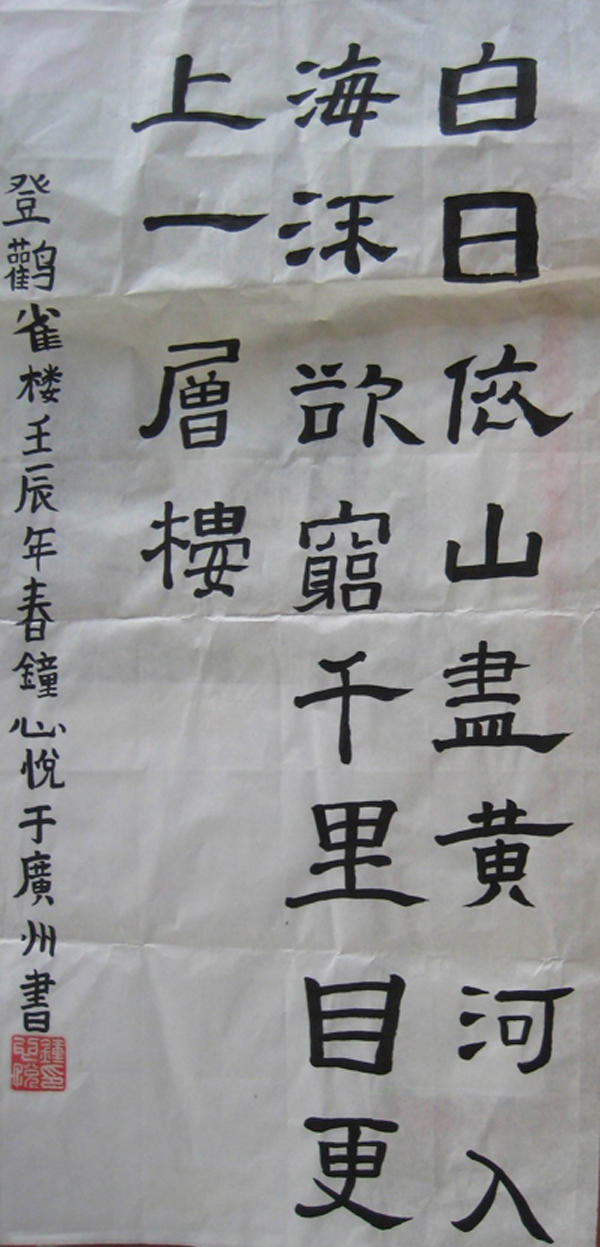 白日依山盡黄河入
海流欲竆千里目更
上一層樓
登鹳雀楼壬辰年春鐘心悦于廣州書
鍾心悦印